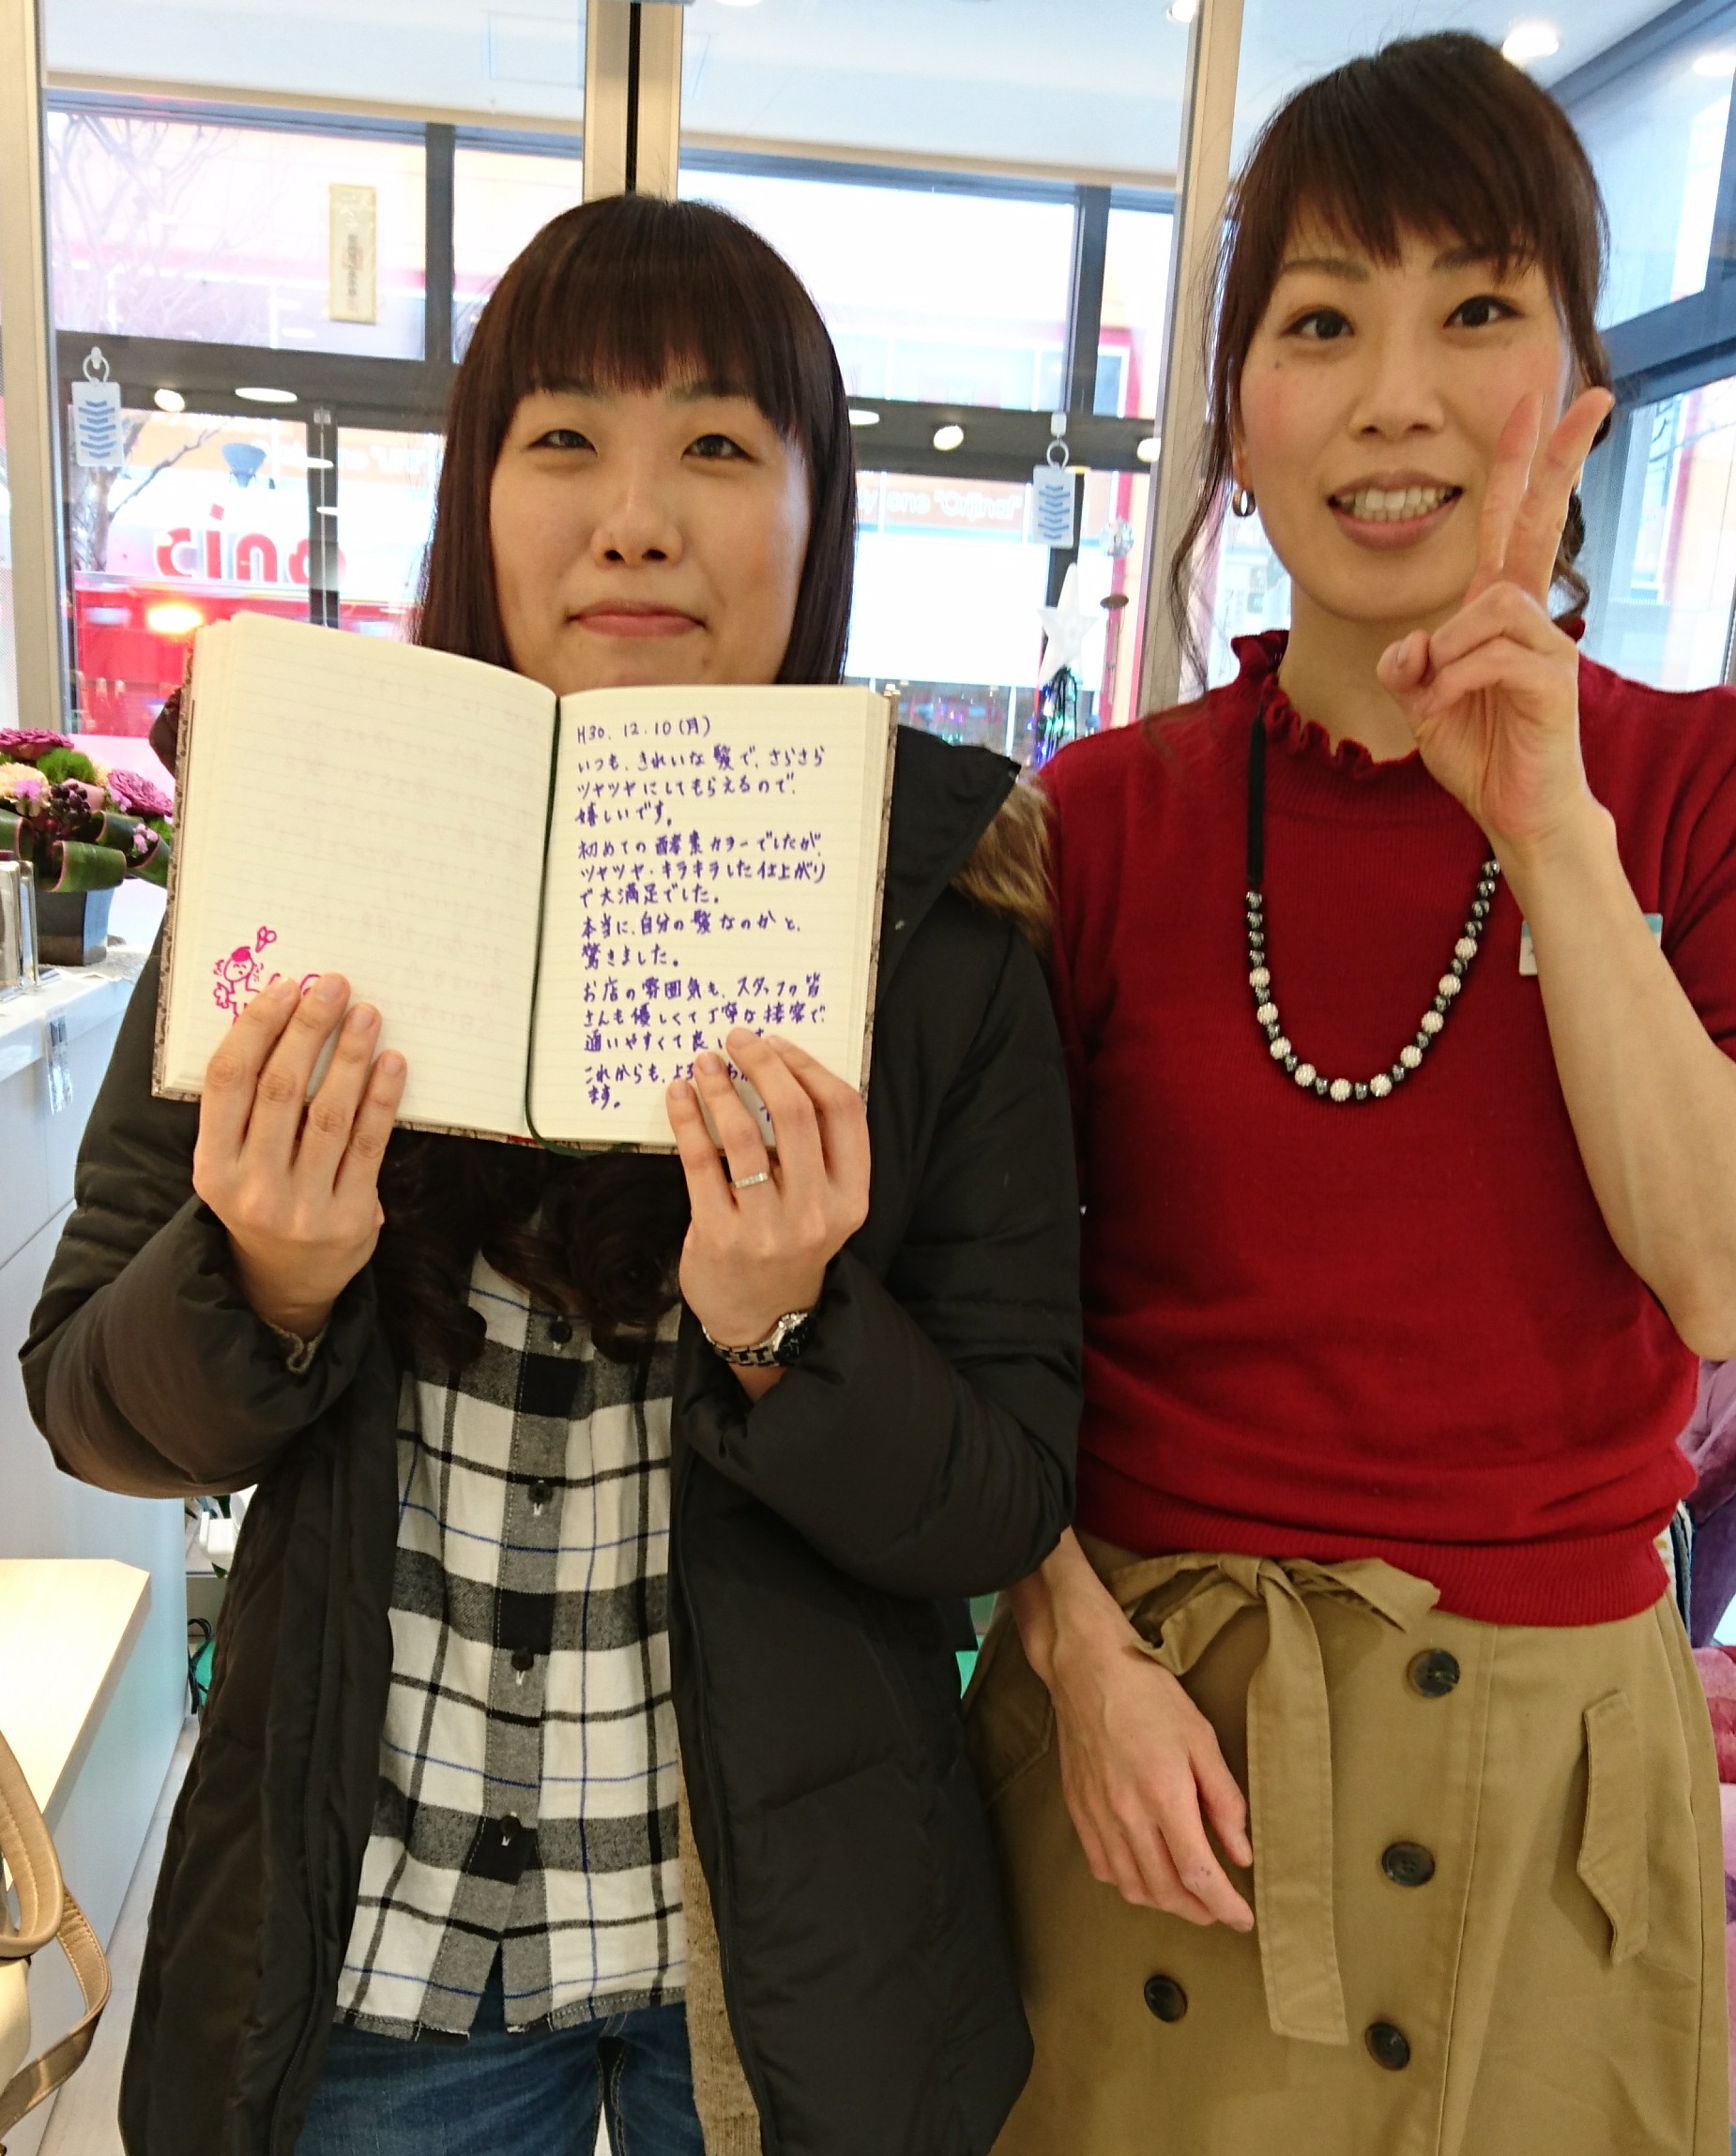 cina
H30.12.10(月)
いつも、きれいな髪で、さらさら
ツヤツヤにしてもらえるので、
嬉しいです。
初めての酵素カラーでしたが、
ツヤツヤ・キラキラした仕上がり
で大満足でした。
本当に、自分の髪なのかと、
驚きました。
お店の雰囲気も、スタッフの皆
さんも優しくて丁寧な接客で、
通いやすくて良い
これからも、よろ
ます。